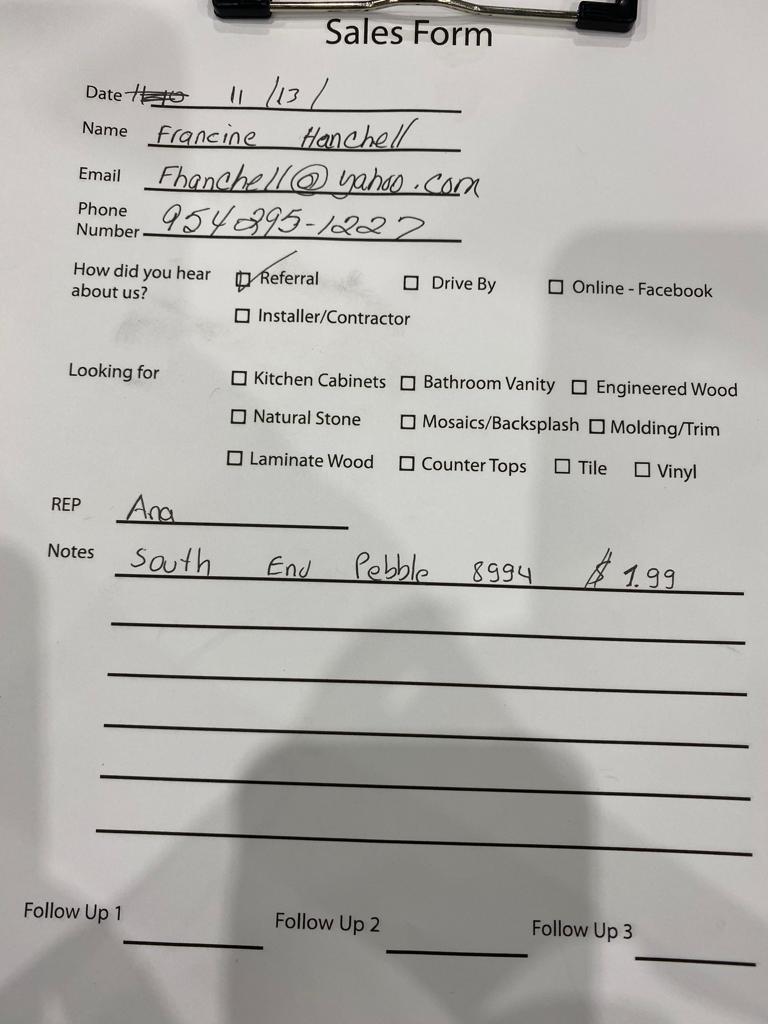 Sales Form
Date 11/13/
Name Francine Hanchell
Email Fhanchell@yahoo.com
Phone
Number 954 295-1227
How did you hear
about us?
Referral Drive By Online - Facebook
Installer/Contractor
Looking for
Kitchen Cabinets Bathroom Vanity Engineered Wood
Natural Stone Mosaics/Backsplash Molding/Trim
Laminate Wood Counter Tops Tile Vinyl
REP Ana
Notes South End Pebble 8994 $1.99
Follow Up 1 Follow Up 2 Follow Up 3